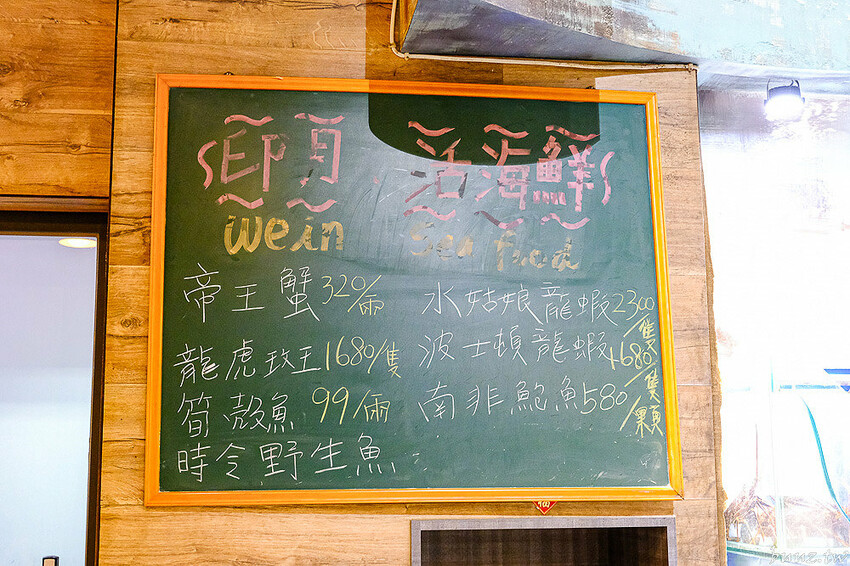 印月 活海鮮
wein Sea food
帝王蟹320/兩 水姑娘龍蝦2300/隻
龍虎玟王1680/隻 波士頓龍蝦1680/隻
筍殼魚 99/兩 南非鮑魚580/顆
時令野生魚